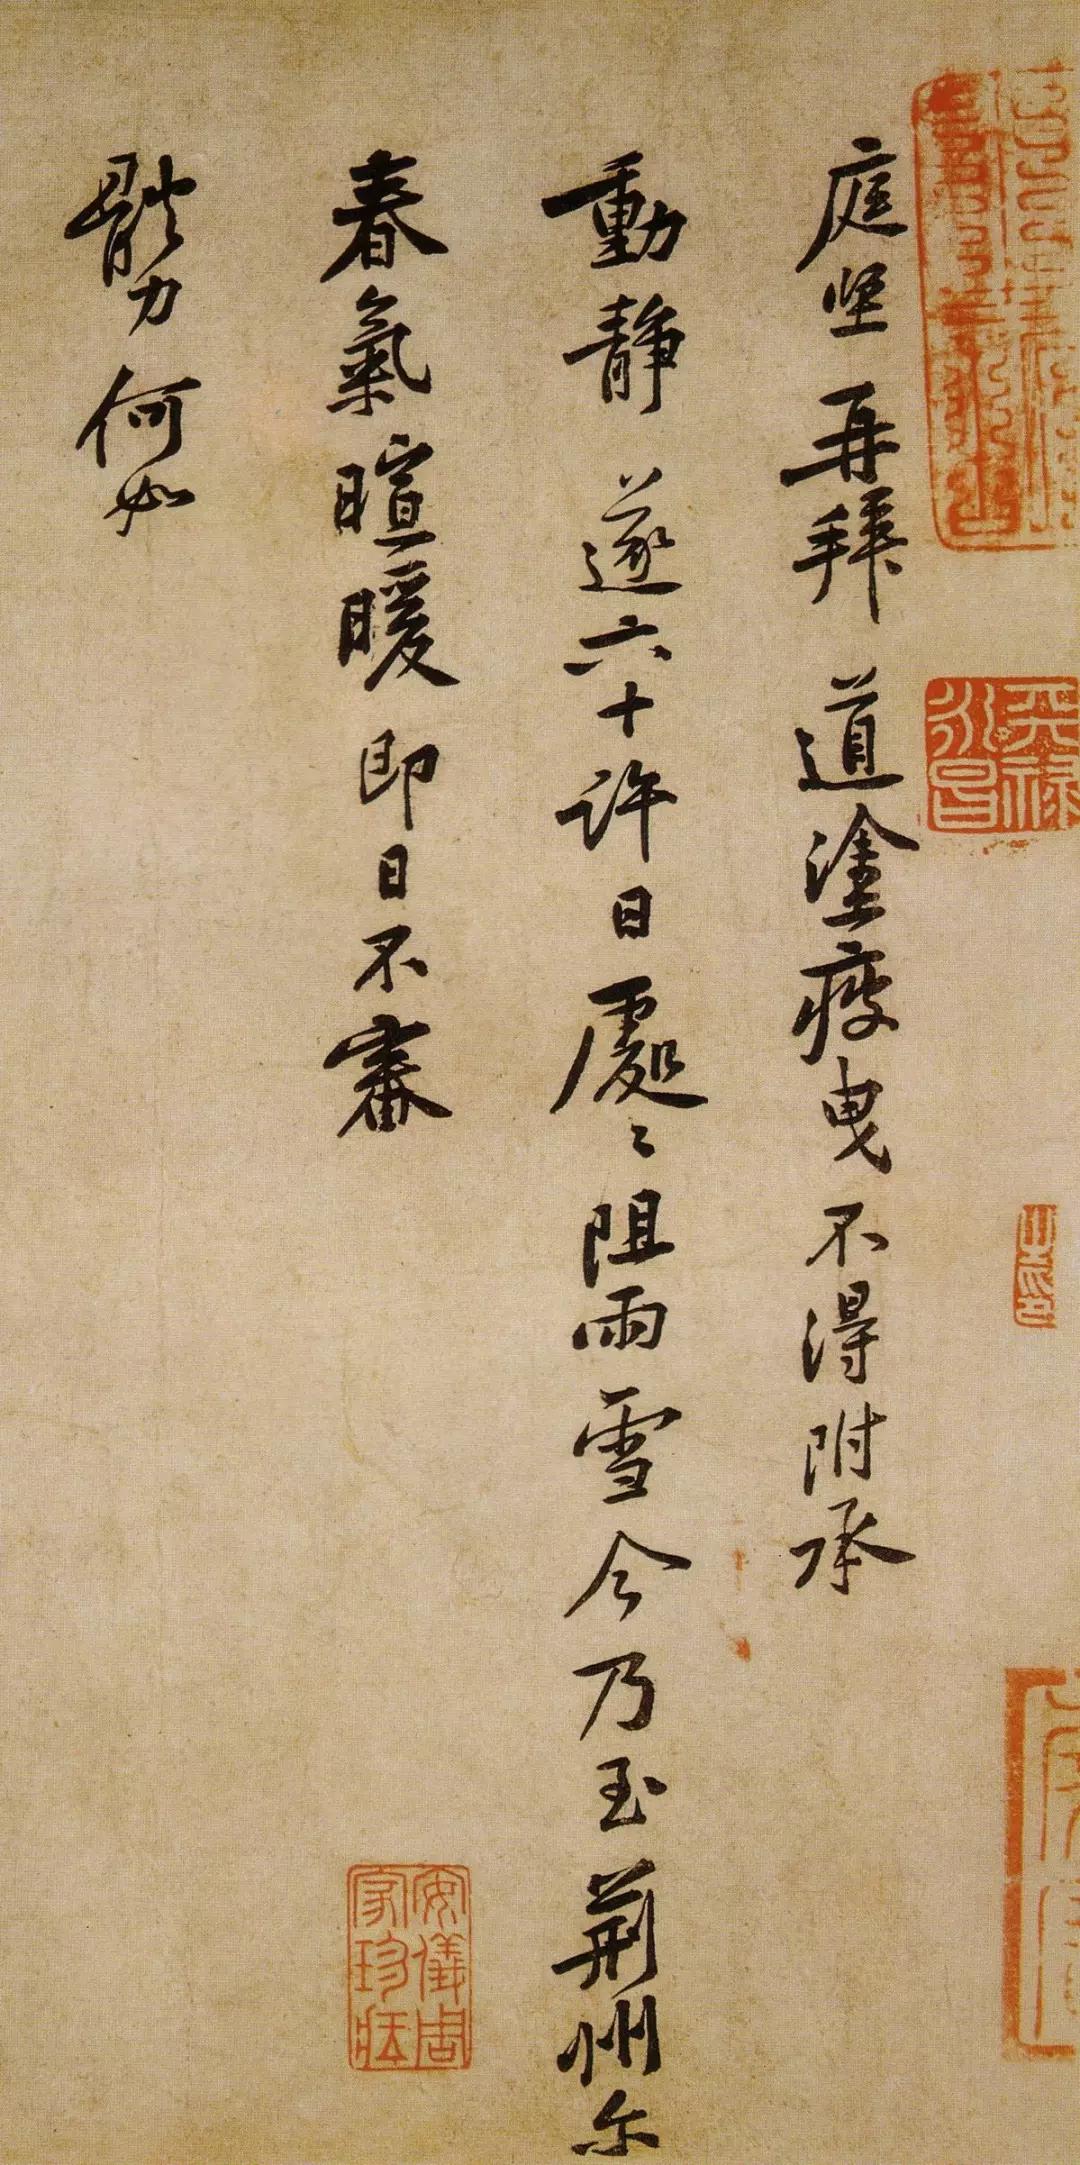 天祿永昌
庭坚再拜道塗疲曳不得附承
動靜遂六十許日處〻阻雨雪今乃至荊州尔
春氣暄暖即日不審
體力何如
安儀周家珍藏